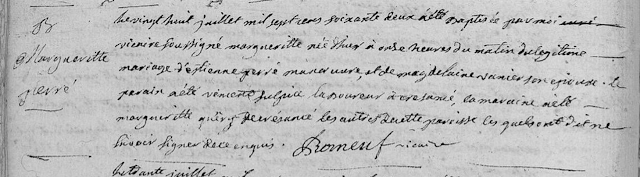 B
Margueritte
perré
le vingt huit juillet mil sept cens soixante deux a été baptisée par moi
vicaire soussigné margueritte née d'hier à onze heures du matin du legitime
mariage d'estienne perré manœuvre, et de magdelaine vanier son epouse. le
parain a été vincent sulpice laboureur à la maraine a été
margueritte de cette paroisse lesquels ont dit ne
savoir signer de ce enquis. Romeuf vicaire
juillet